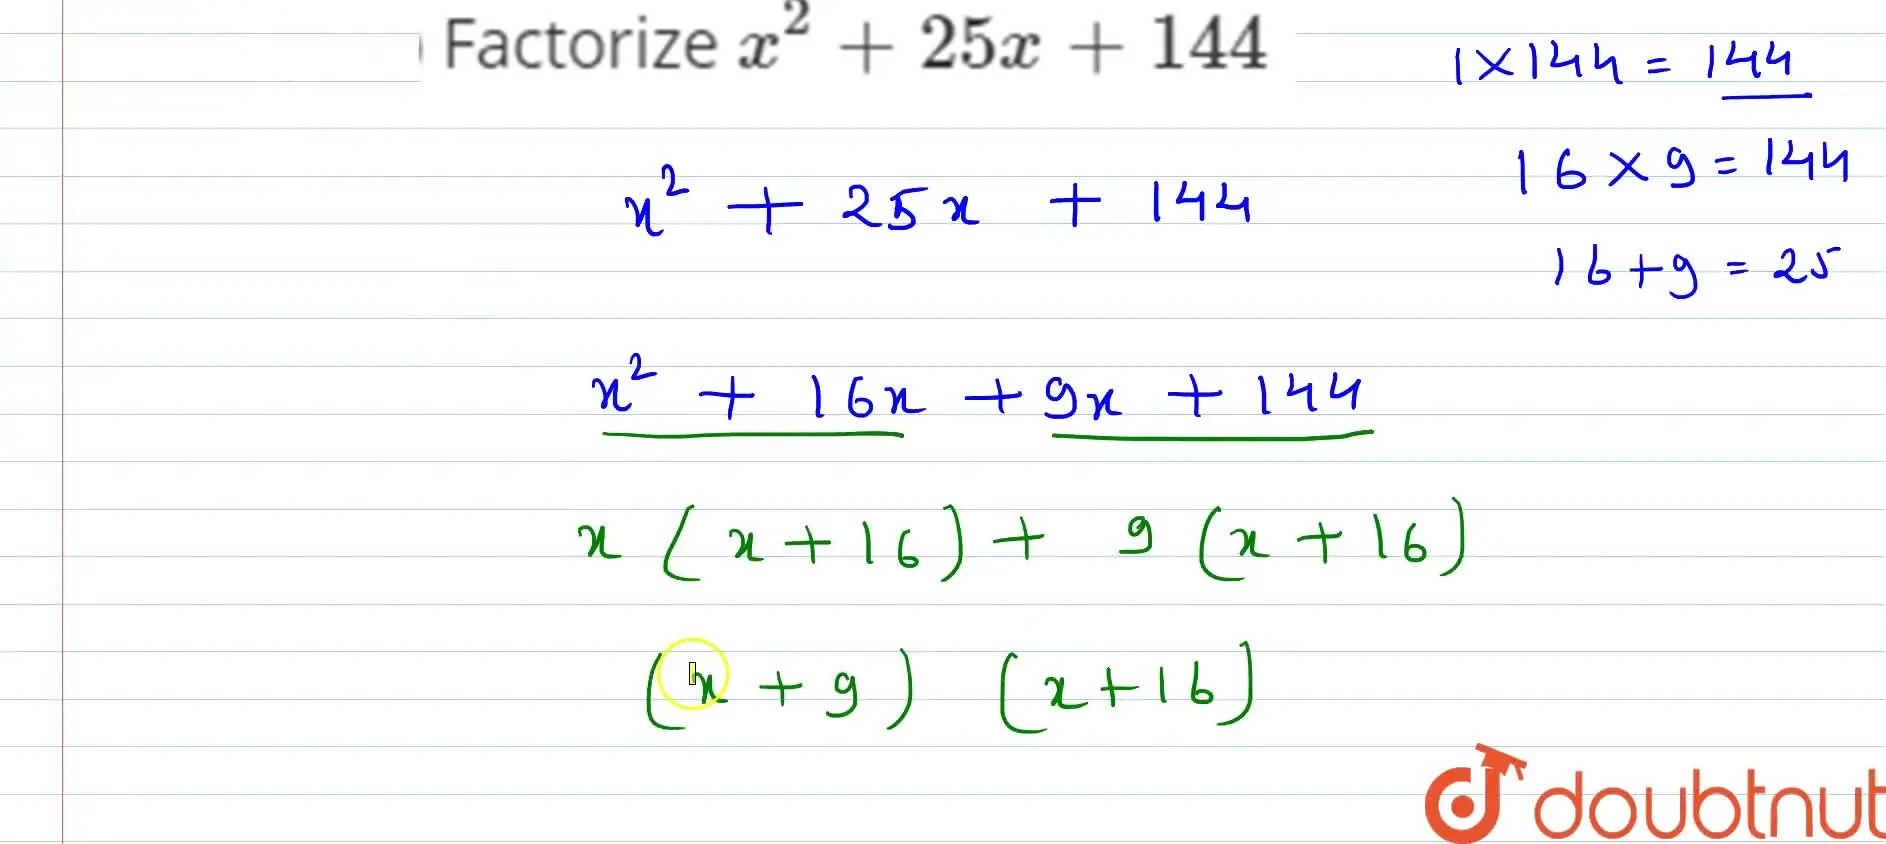 ) Factorize x² + 25x + 144
1 × 144 = 144
16 × 9 = 144
16 + 9 = 25
x² + 25x + 144
x² + 16x + 9x + 144
x (x + 16) + 9 (x + 16)
(x + 9) (x + 16)
doubtnut